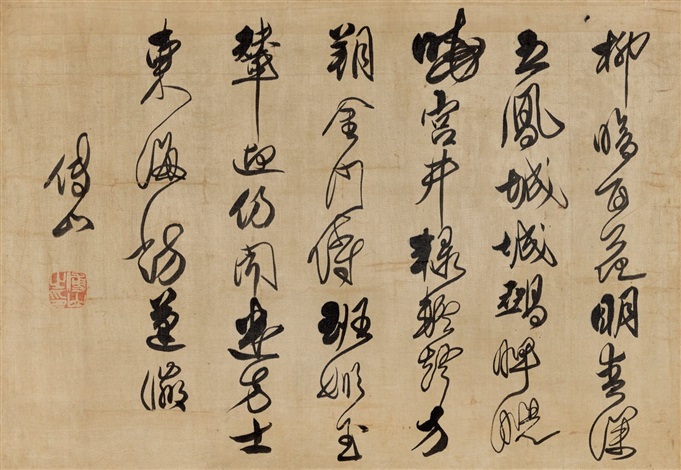 柳暗百花明春深
五鳳城城鵶睥睨
曉宮井轆轤聲方
朔金門侍班姬玉
輦迎仍聞遣方士
東海訪蓬瀛
傅山
傅山之印